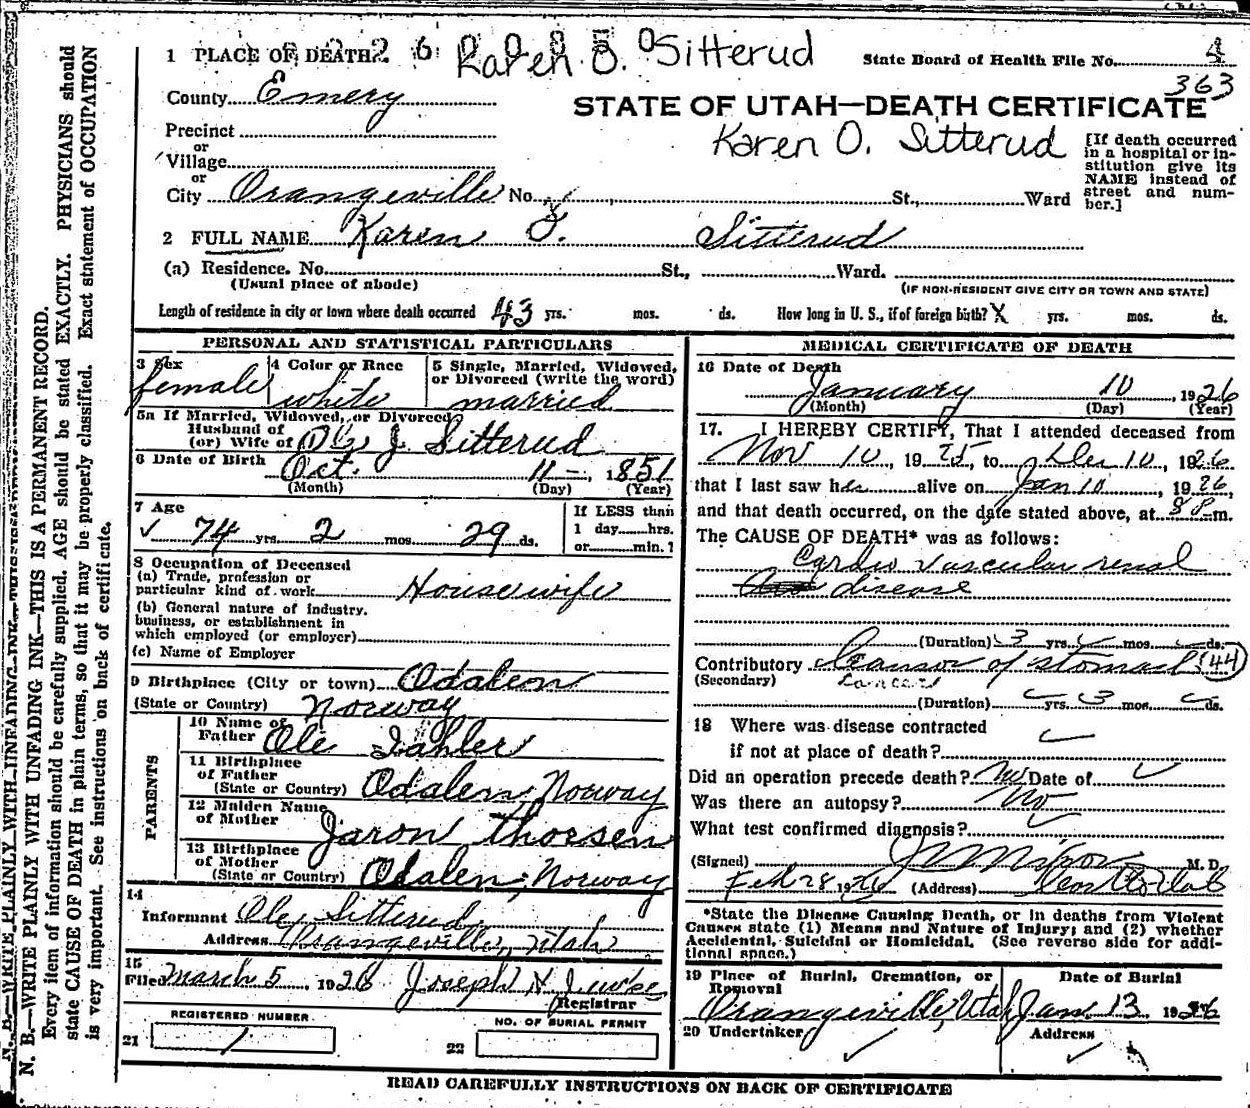 N. B.—WRITE PLAINLY WITH UNFADING INK—THIS IS A PERMANENT RECORD.
Every item of information should be carefully supplied. AGE should be stated EXACTLY. PHYSICIANS should
state CAUSE OF DEATH in plain terms, so that it may be properly classified. Exact statement of OCCUPATION
is very important. See instructions on back of certificate.
1 PLACE OF DEATH Karen O. Sitterud State Board of Health File No. 4
363
County Emery
STATE OF UTAH—DEATH CERTIFICATE
Precinct
Karen O. Sitterud
[If death occurred in a hospital or institution give its NAME instead of street and number.]
or
Village
or
City Orangeville No. St., Ward
2 FULL NAME Karen Sitterud
(a) Residence. No. St., Ward.
(Usual place of abode) (IF NON-RESIDENT GIVE CITY OR TOWN AND STATE)
Length of residence in city or town where death occurred 43 yrs. mos. ds. How long in U. S., if of foreign birth? X yrs. mos. ds.
PERSONAL AND STATISTICAL PARTICULARS
3 Sex 4 Color or Race 5 Single, Married, Widowed,
or Divorced (write the word)
female white married
5a If Married, Widowed, or Divorced
Husband of
(or) Wife of Ole J. Sitterud
6 Date of Birth Oct. 11 — , 1851
(Month) (Day) (Year)
7 Age
74 yrs. 2 mos. 29 ds.
If LESS than
1 day hrs.
or min.?
8 Occupation of Deceased
(a) Trade, profession or
particular kind of work Housewife
(b) General nature of industry.
business, or establishment in
which employed (or employer)
(c) Name of Employer
9 Birthplace (City or town) Odalen
(State or Country) Norway
PARENTS
10 Name of
Father Ole
11 Birthplace
of Father
(State or Country) Odalen Norway
12 Maiden Name
of Mother Jaron Thorsen
13 Birthplace
of Mother
(State or Country) Odalen, Norway
14
Informant Ole Sitterud
Address Orangeville, Utah
15
Filed March 5, 1926 Joseph H Jewkes
Registrar
REGISTERED NUMBER NO. OF BURIAL PERMIT
21 1 22
MEDICAL CERTIFICATE OF DEATH
16 Date of Death
January 10 , 1926
(Month) (Day) (Year)
17. I HEREBY CERTIFY, That I attended deceased from
Nov 10, 1925, to Dec 10, 1926
that I last saw her alive on Jan 10 , 1926,
and that death occurred, on the date stated above, at 8 P m.
The CAUSE OF DEATH* was as follows:
Cardio vascular renal
disease
(Duration) 3 yrs. mos. ds.
Contributory Cansor of stomach (44)
(Secondary) Cancer
(Duration) yrs. 3 mos. ds.
18 Where was disease contracted
if not at place of death?
Did an operation precede death? No Date of
Was there an autopsy? No
What test confirmed diagnosis?
(Signed) M. D.
Feb 28 1926 (Address) Castle Dale
*State the Disease Causing Death, or in deaths from Violent
Causes state (1) Means and Nature of Injury; and (2) whether
Accidental, Suicidal or Homicidal. (See reverse side for additional space.)
19 Place of Burial, Cremation, or
Removal
Date of Burial
Orangeville, Utah Jan. 13 1926
20 Undertaker Address
READ CAREFULLY INSTRUCTIONS ON BACK OF CERTIFICATE